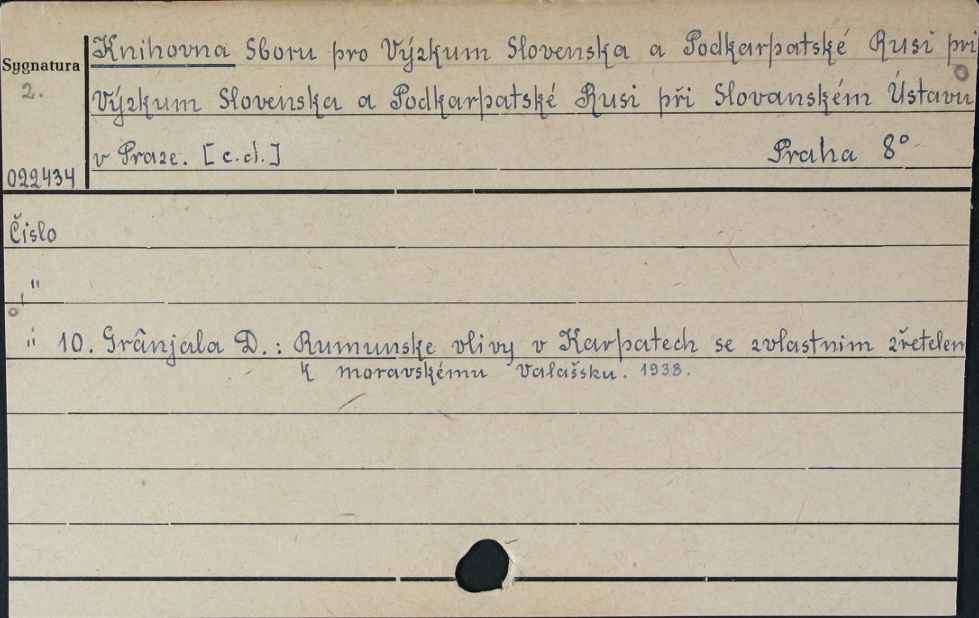 Knihovna Sboru pro Výzkum Slovenska a Podkarpatské Rusi při
Sygnatura
2.
Výzkum Slovenska a Podkarpatské Rusi při Slovanském Ústavu
v Praze. [c.d.] Praha 8°
022434
Číslo
"
" 10. Grânjala D.: Rumunske vlivy v Karpatech se zvlastnim zřetelem
k moravskému Valašsku. 1938.